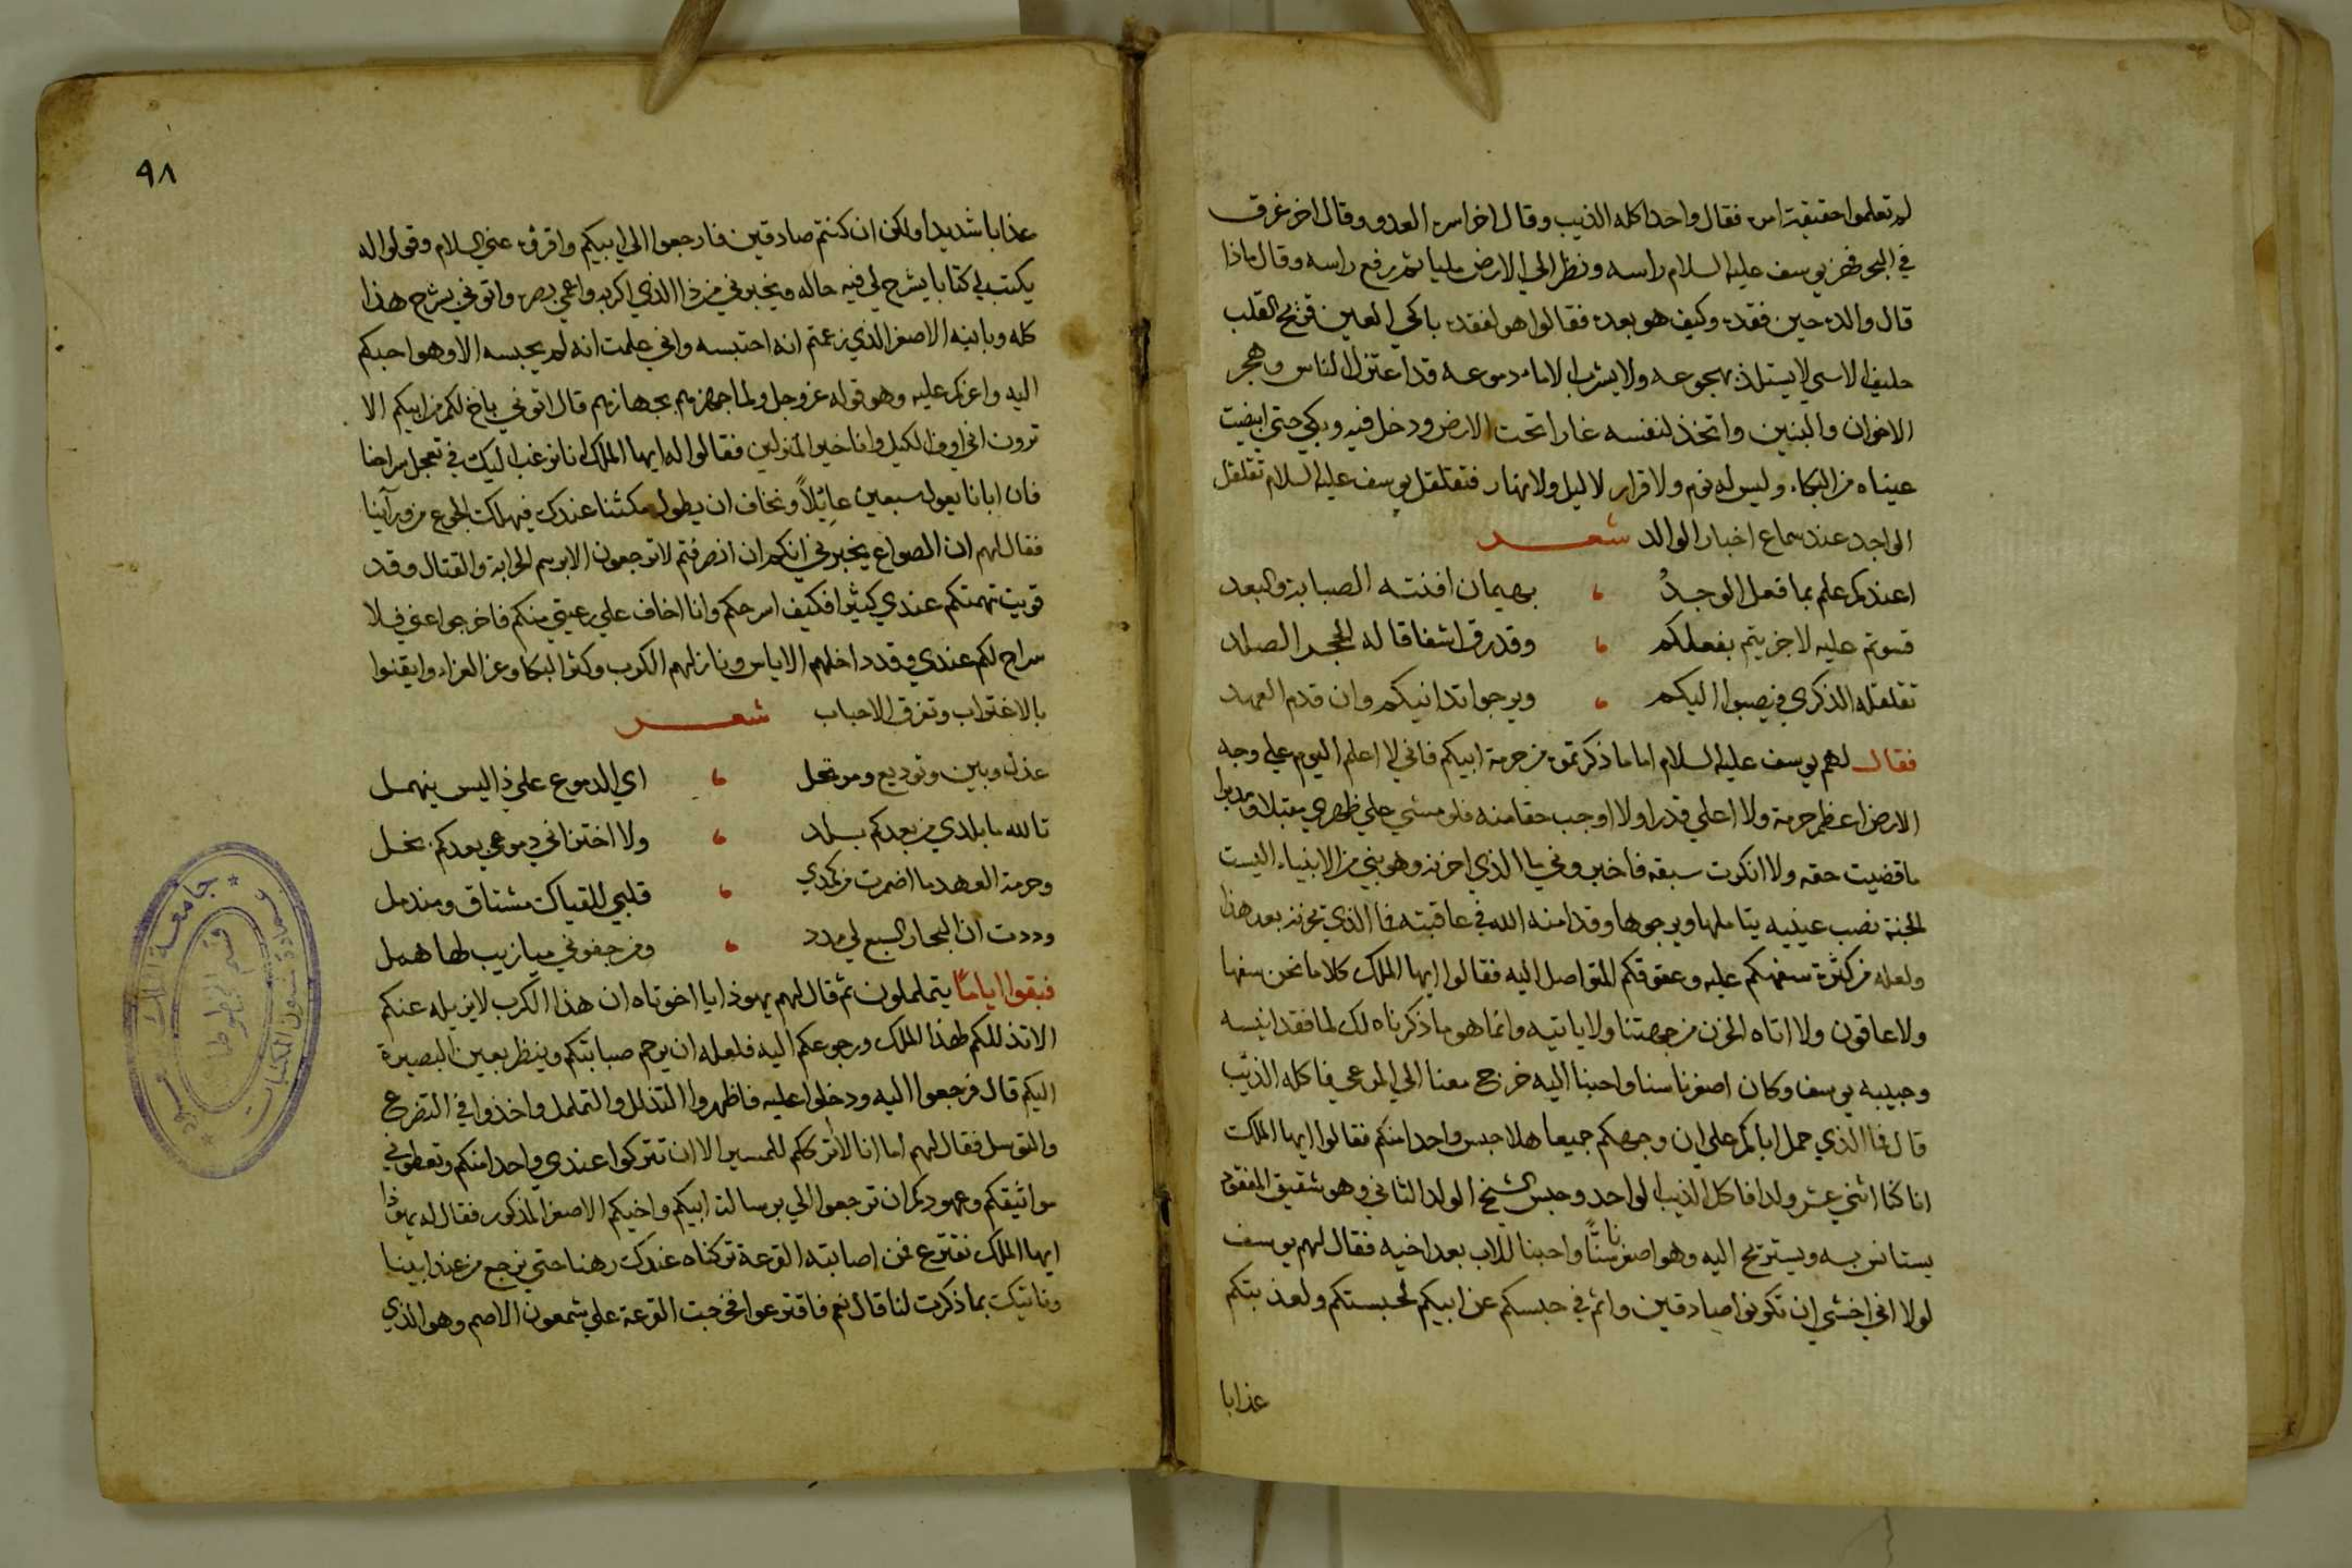 لم تعلموا حقيقة امره فقال واحد اكله الذيب وقال اخر اسره العدو وقال اخر غرق
في البحر فهز يوسف عليه السلام راسه ونظر الي الارض مليا ثم رفع راسه وقال ماذا
قال والده حين فقده وكيف هو بعده فقالوا هو لفقده باكي العين قريح القلب
حليف الاسي لا يستلذ بهجوعه ولا يشرب الا ماء دموعه قد اعتزل الناس وهجر
الاخوان والبنين واتخذ لنفسه غارا تحت الارض ودخل فيه وبكي حتي ابيضت
عيناه من البكاء وليس له نوم ولا قرار لا ليل ولا نهار فتقلقل يوسف عليه السلام تقلقل
الواجد عند سماع اخبار الوالد شعر
اعندكم علم بما فعل الوجدُ بهيمان افنته الصبابة والبعد
قسوتم عليه لا جزيتم بفعلكم وقد رق اشفاقا له الحجر الصلد
تقلقله الذكري فيصبوا اليكم ويرجوا تدانيكم وان قدم العهد
فقال لهم يوسف عليه السلام اما ما ذكرتموه من حرمة ابيكم فاني لا اعلم اليوم علي وجه
الارض اعظم حرمة ولا اعلي قدرا ولا اوجب حقا منه فلو مشي علي ظهري مقبلا ومدبرا
ما قضيت حقه ولا انكرت سبقه فاخبروني ما الذي احزنه وهو نبي من الانبياء اليست
الجنة نصب عينيه يتاملها ويرجوها وقد امنه الله في عاقبته فما الذي يحزنه بعد هذا
ولعله من كثرة سفهكم عليه وعقوقكم المتواصل اليه فقالوا ايها الملك كلا ما نحن سفها
ولا عاقون ولا اتاه الحزن من جهتنا ولا ياتيه وانما هو ما ذكرناه لك لما فقد انيسه
وحبيبه يوسف وكان اصغرنا سنا واحبنا اليه خرج معنا الي المرعي فاكله الذئب
قال فما الذي حمل اباكم علي ان وجهكم جميعا هلا حبس واحدا منكم فقالوا ايها الملك
انا كنا اثني عشر ولدا فاكل الذيب الواحد وحبس الشيخ الولد الثاني وهو شقيق المفقود
يستانس به ويستريح اليه وهو اصغرنا سنًّا واحبنا للاب بعد اخيه فقال لهم يوسف
لولا اني اخشي ان تكونوا صادقين واثم في حبسكم عن ابيكم لحبستكم ولعذبتكم
عذابا
٩٨
عذابا شديدا ولكن ان كنتم صادقين فارجعوا الي ابيكم واقروه عني السلام وقولوا له
يكتب لي كتابا يشرح لي فيه حاله ويخبرني من ذا الذي اكربه واعمي بصره واتوني بشرح هذا
كله وبابنه الاصغر الذي زعمتم انه احتبسه واني علمت انه لم يحبسه الا وهو احبكم
اليه واعزكم عليه وهو قوله عز وجل ولما جهزهم بجهازهم قال اتوني باخ لكم من ابيكم الا
ترون اني اوف الكيل وانا خير المنزلين فقالوا له ايها الملك انا نرغب اليك في تعجل سراحنا
فان ابانا يعول سبعين عائِلاً ونخاف ان يطول مكثنا عندك فيهلك الجوع من ورآئنا
فقال لهم ان الصواع يخبرني انكم ان انصرفتم لا ترجعون الا برسم الحرابة والقتال وقد
قويت تهمتكم عندي كثيرا فكيف اسرحكم وانا اخاف علي رعيتي منكم فاخرجوا عني فلا
سراح لكم عندي وقد داخلهم الاياس ونازلهم الكرب وكثر البكا وعز العزاء وايقنوا
بالاغتراب وتفرق الاحباب شعر
عذل وبين وتوديع ومرتحل اي الدموع علي ذا ليس ينهمل
تالله ما بلدي من بعدكم بلد ولا اختزاني دموعي بعدكم بخل
وحرمة العهد ما اضمرت من كمدي قلبي للقياك مشتاق ومندمل
وددت ان البحار السبع لي مدد ومن جفوني ميازيب لها همل
فبقوا اياماً يتململون ثم قال لهم يهوذا يا اخوتاه ان هذا الكرب لا يزيله عنكم
الا تذللكم لهذا الملك ورجوعكم اليه فلعله ان يرحم صبابتكم وينظر بعين البصيرة
اليكم قال فرجعوا اليه ودخلوا عليه فاظهروا التذلل والتململ واخذوا في التضرع
والتوسل فقال لهم اما انا لا اترككم للمسير الا ان تتركوا عندي واحدا منكم وتعطوني
مواثيقكم وعهودكم ان ترجعوا الي برسالة ابيكم واخيكم الاصغر المذكور فقال له يهوذا
ايها الملك نقترع فمن اصابته القرعة تركناه عندك رهنا حتي نرجع من عند ابينا
وناتيك بما ذكرت لنا قال نعم فاقترعوا فخرجت القرعة علي شمعون الاصم وهو الذي
جامعة الملك سعود
عمادة شئون المكتبات
قسم المخطوطات